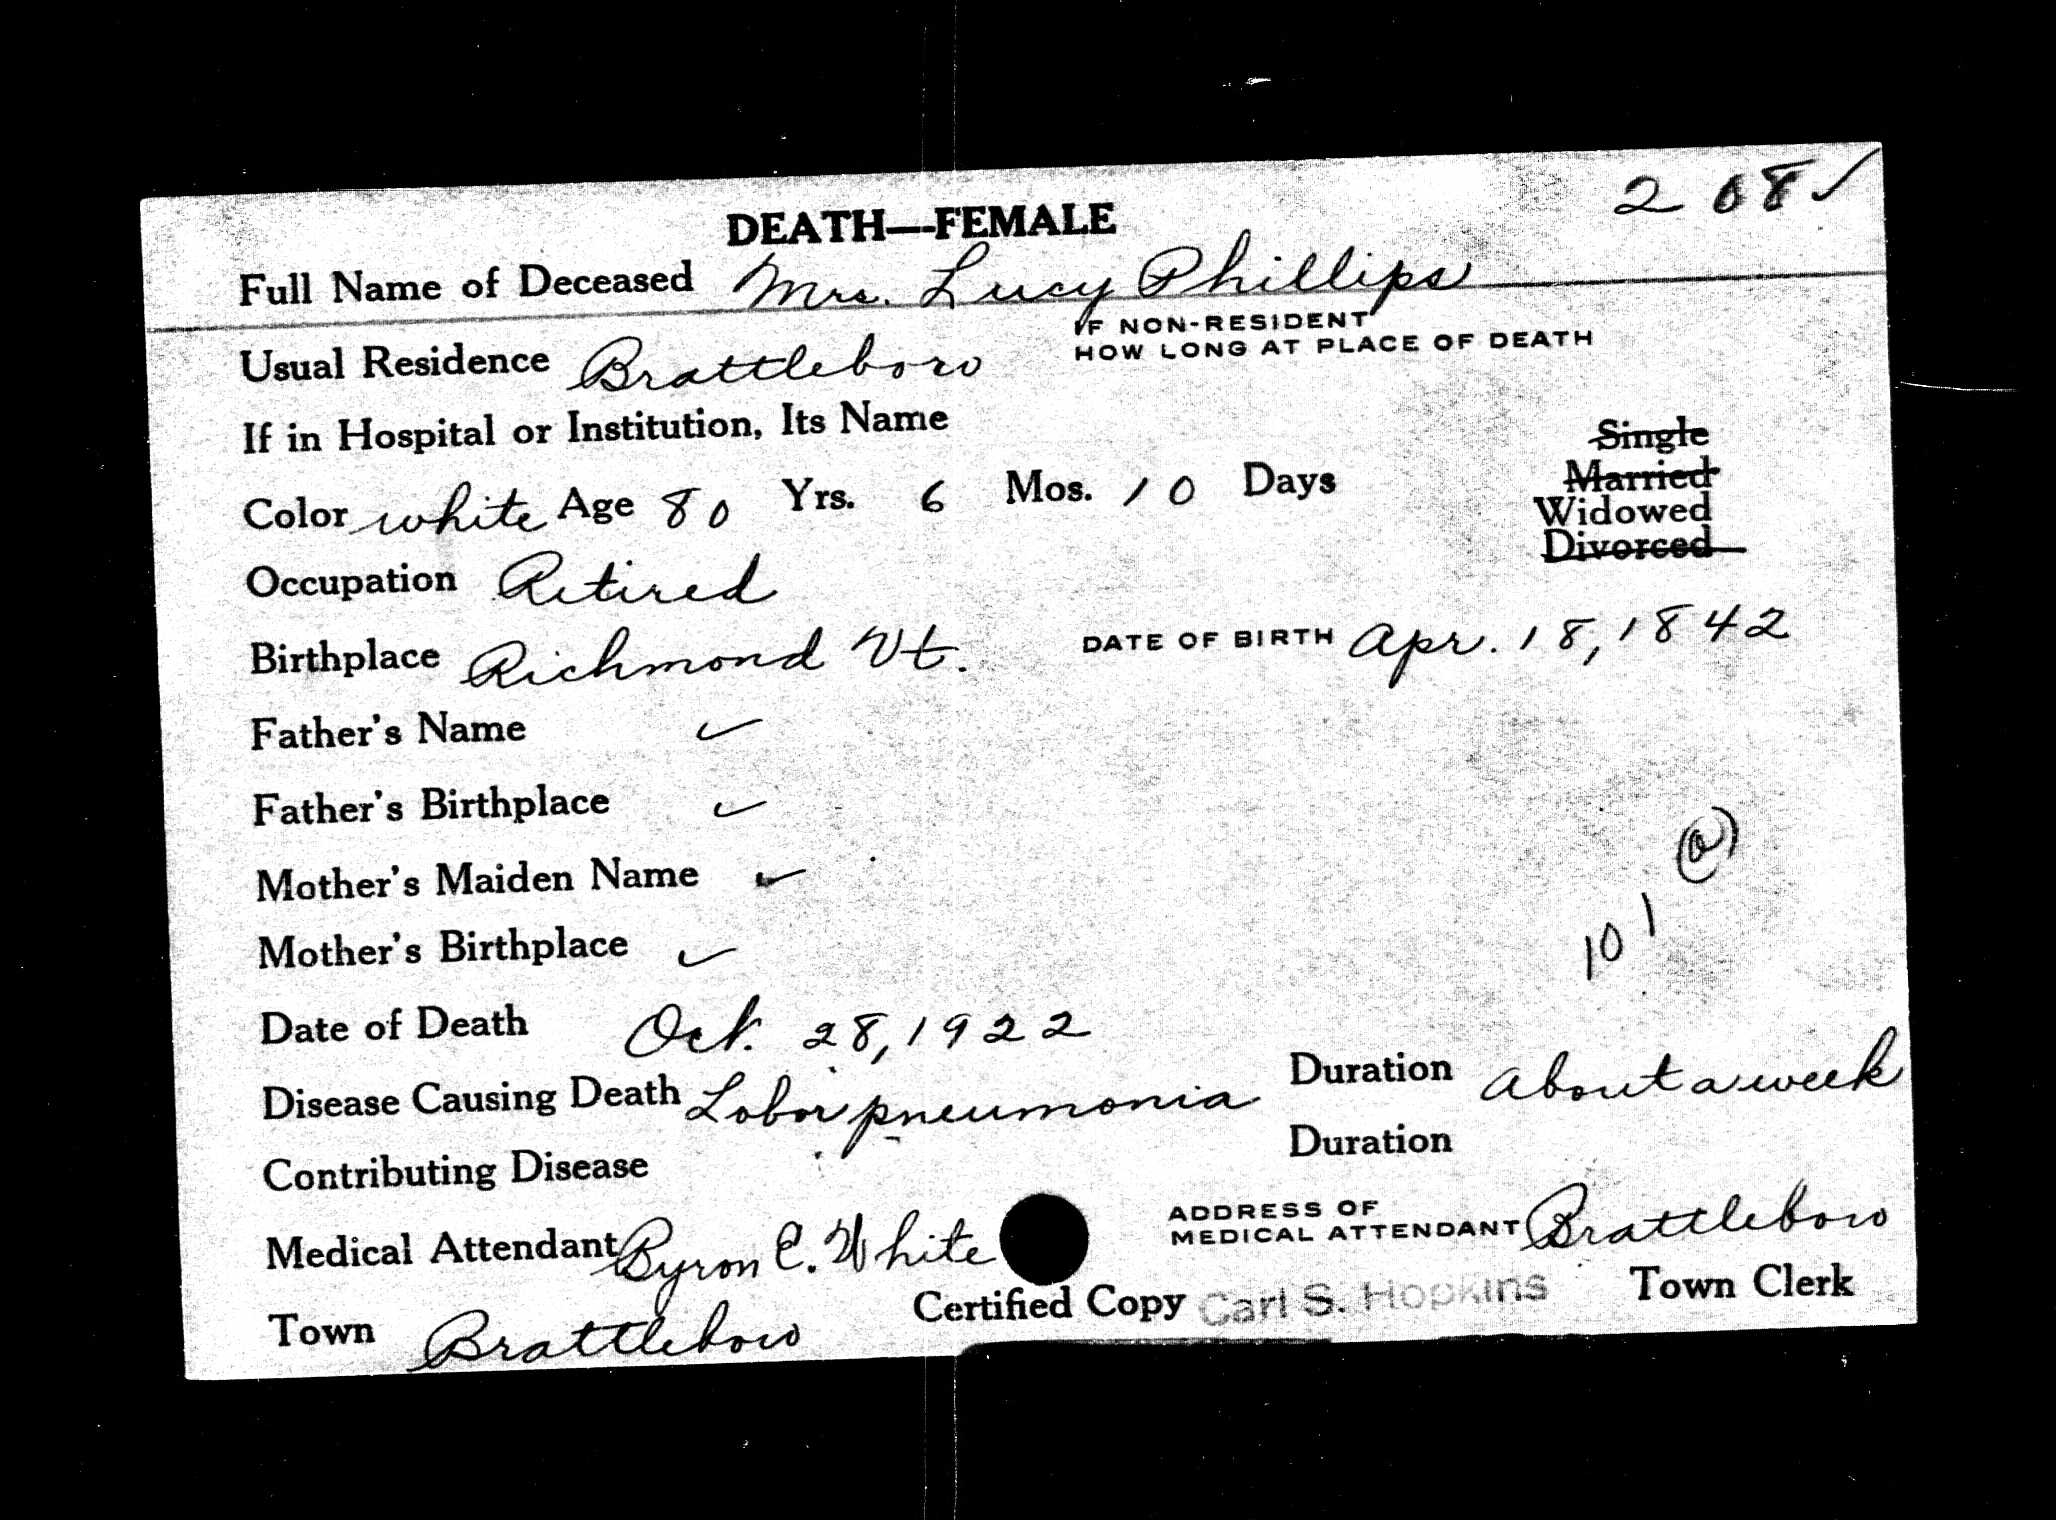 2 08 ✓
DEATH—FEMALE
Full Name of Deceased Mrs. Lucy Phillips
Usual Residence Brattleboro IF NON-RESIDENT HOW LONG AT PLACE OF DEATH
If in Hospital or Institution, Its Name
Single
Married
Color white Age 80 Yrs. 6 Mos. 10 Days
Widowed
Divorced
Occupation Retired
Birthplace Richmond Vt. DATE OF BIRTH Apr. 18, 1842
Father's Name ✓
Father's Birthplace ✓
Mother's Maiden Name ✓
Mother's Birthplace ✓
101 (a)
Date of Death Oct. 28, 1922
Disease Causing Death Lobar pneumonia Duration About a week
Contributing Disease Duration
Medical Attendant Byron E. White ADDRESS OF MEDICAL ATTENDANT Brattleboro
Town Brattleboro Certified Copy Carl S. Hopkins Town Clerk